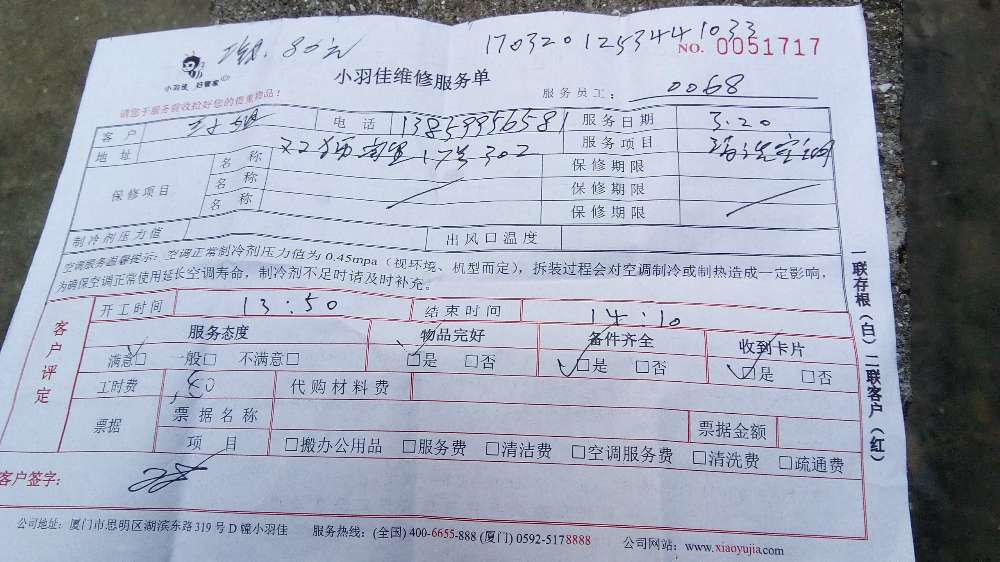 80元 1703201253441033
NO. 0051717
小羽佳 好管家
小羽佳维修服务单
服务员工: 0068
请您于服务前收拾好您的贵重物品!
客户 电话 13859956581 服务日期 3.20
地址 17号302 服务项目 清洗空调
保修项目 名称 保修期限
名称 保修期限
名称 保修期限
制冷剂压力值 出风口温度
空调服务温馨提示: 空调正常制冷剂压力值为0.45mpa (视环境、机型而定), 拆装过程会对空调制冷或制热造成一定影响,
为确保空调正常使用延长空调寿命, 制冷剂不足时请及时补充。
开工时间 13:50 结束时间 14:10
客户评定
服务态度 物品完好 备件齐全 收到卡片
满意□ 一般□ 不满意□ □是 □否 □是 □否 □是 □否
工时费 80 代购材料费
票据 票据名称 票据金额
项目 □搬办公用品 □服务费 □清洁费 □空调服务费 □清洗费 □疏通费
客户签字:
一联存根(白)二联客户(红)
公司地址: 厦门市思明区湖滨东路319号D幢小羽佳 服务热线: (全国) 400-6655-888 (厦门) 0592-5178888 公司网站: www.xiaoyujia.com